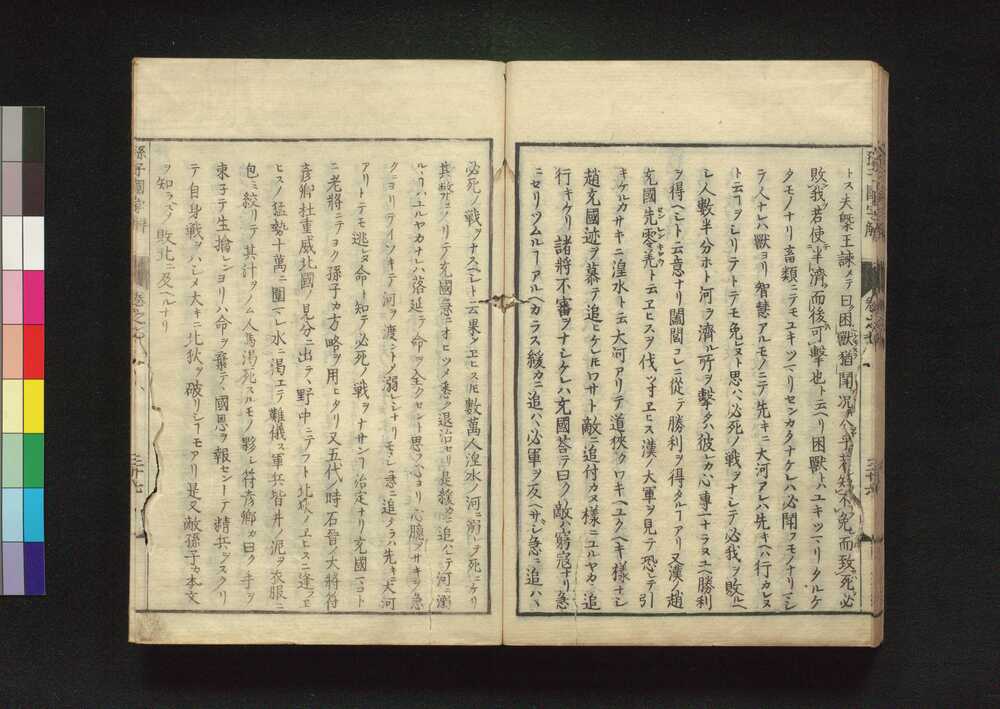 トス夫槩王諫メテ曰困獸猶鬪况ヤ人乎若知不免而致死必
敗我若使半濟而後可擊也ト云ヘリ困獸トハユキツマリタルケ
タモノナリ畜類ニテモユキツマリセンカタナケレハ必鬪フモノナリマシ
テ人ナレハ獸ヨリ智慧アルモノニテ先キニ大河アレハ先キヘハ行カレヌ
ト云コヲシリテトテモ免レヌト思ハハ必死ノ戰ヲナシテ必我ヲ敗ルヘ
シ人數半分ホト河ヲ濟ル所ヲ擊タハ彼レカ心專一ナラヌユヘ勝利
ヲ得ヘシト云意ナリ闔閭コレニ從テ勝利ヲ得タルコアリ又漢ノ趙
充國先零羌ト云ヱヒスヲ伐ツ寸ヱヒス漢ノ大軍ヲ見テ恐レテ引
キケルカサキニ湟水ト云大河アリテ道狹クワキヘユクヘキ樣ナシ
趙充國迹ヲ慕テ追ヒケレ𪜈ワサト敵ニ追付カヌ樣ニユルヤカニ追
行キケリ諸將不審ヲナシケレハ充國荅テ曰ク敵ハ窮寇ナリ急
ニセリツムルコアルヘカラス緩カニ追ハハ必軍ヲ反ヘサシ急ニ追ハハ
必死ノ戰ヲナスヘシト云果シテヱヒス𪜈數萬人湟水ノ河ニ溺レテ死ニケリ
其弊ニノリテ充國急ニオヒツメ悉ク退治セリ是緩カニ追ハレテ河ニ溺
ルルハユルヤカナレハ落延テ命ヲ全クセント思フ心ヨリ心臆シサキヲ急
クニヨリテイソキテ河ヲ渡ントメ溺レシナリモシ急ニ追タラハ先キニ大河
アリトテモ逃レヌ命ト知テ必死ノ戰ヲナサンコ治定ナリ充國マコト
ニ老將ニテヨク孫子カ方略ヲ用ヒタリ又五代ノ時石晉ノ大將符
彥卿杜重威北國ノ見分ニ出テ野中ニテフト北狄ノヱヒスニ逢フヱ
ヒスノ猛勢十萬ニ圍マレ水ニ渴ヱテ難儀ス軍兵皆井ノ泥ヲ衣服ニ
包ミ絞リテ其汁ヲノム人馬渴死スルモノ夥シ符彥卿カ曰ク手ヲ
束子テ生擒レンヨリハ命ヲ棄テ國恩ヲ報センニハトテ精兵ヲスクリ
テ自身戰ヲハシメ大キニ北狄ヲ破リシコモアリ是又敵孫子カ本文
ヲ知ラスメ敗北ニ及ヘルナリ
孫子國字解
卷之七
三十七